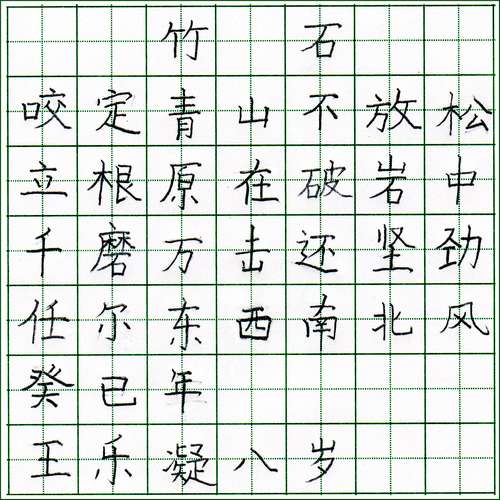 竹石
咬定青山不放松
立根原在破岩中
千磨万击还坚劲
任尔东西南北风
癸已年
王乐凝八岁